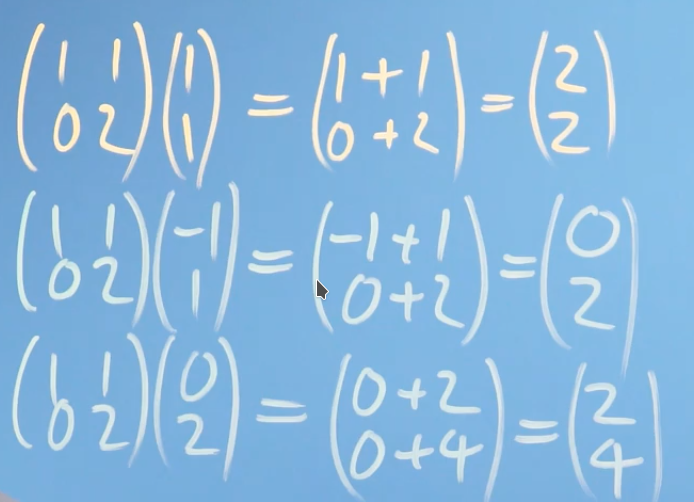 (1 1
0 2)(1
1) = (1 + 1
0 + 2) = (2
2)
(1 1
0 2)(-1
1) = (-1 + 1
0 + 2) = (0
2)
(1 1
0 2)(0
2) = (0 + 2
0 + 4) = (2
4)